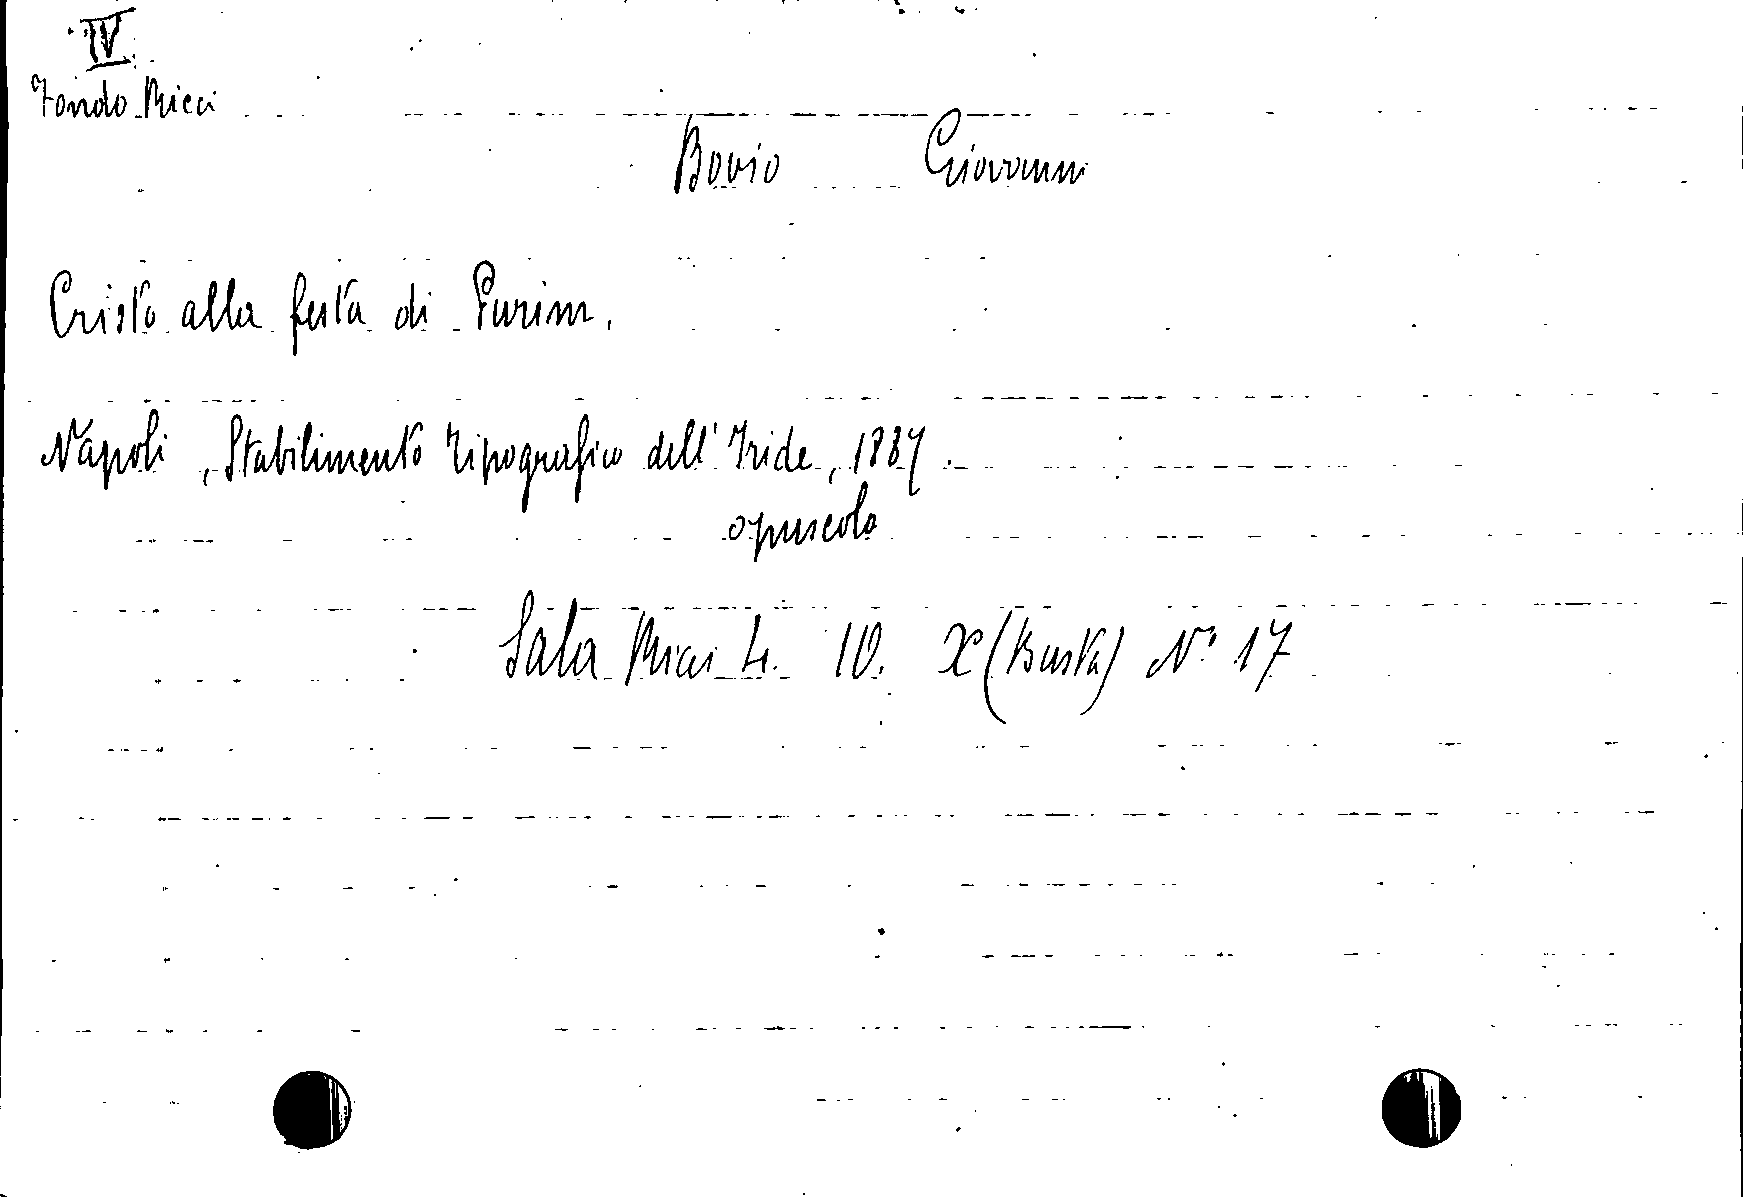 IV
Fondo Ricci
Bovio Giovanni
Cristo alla festa di Purim.
Napoli, Stabilimento Tipografico dell'Iride, 1887.
opuscolo
Sala Ricci 4. 10. X (Busta) N° 17